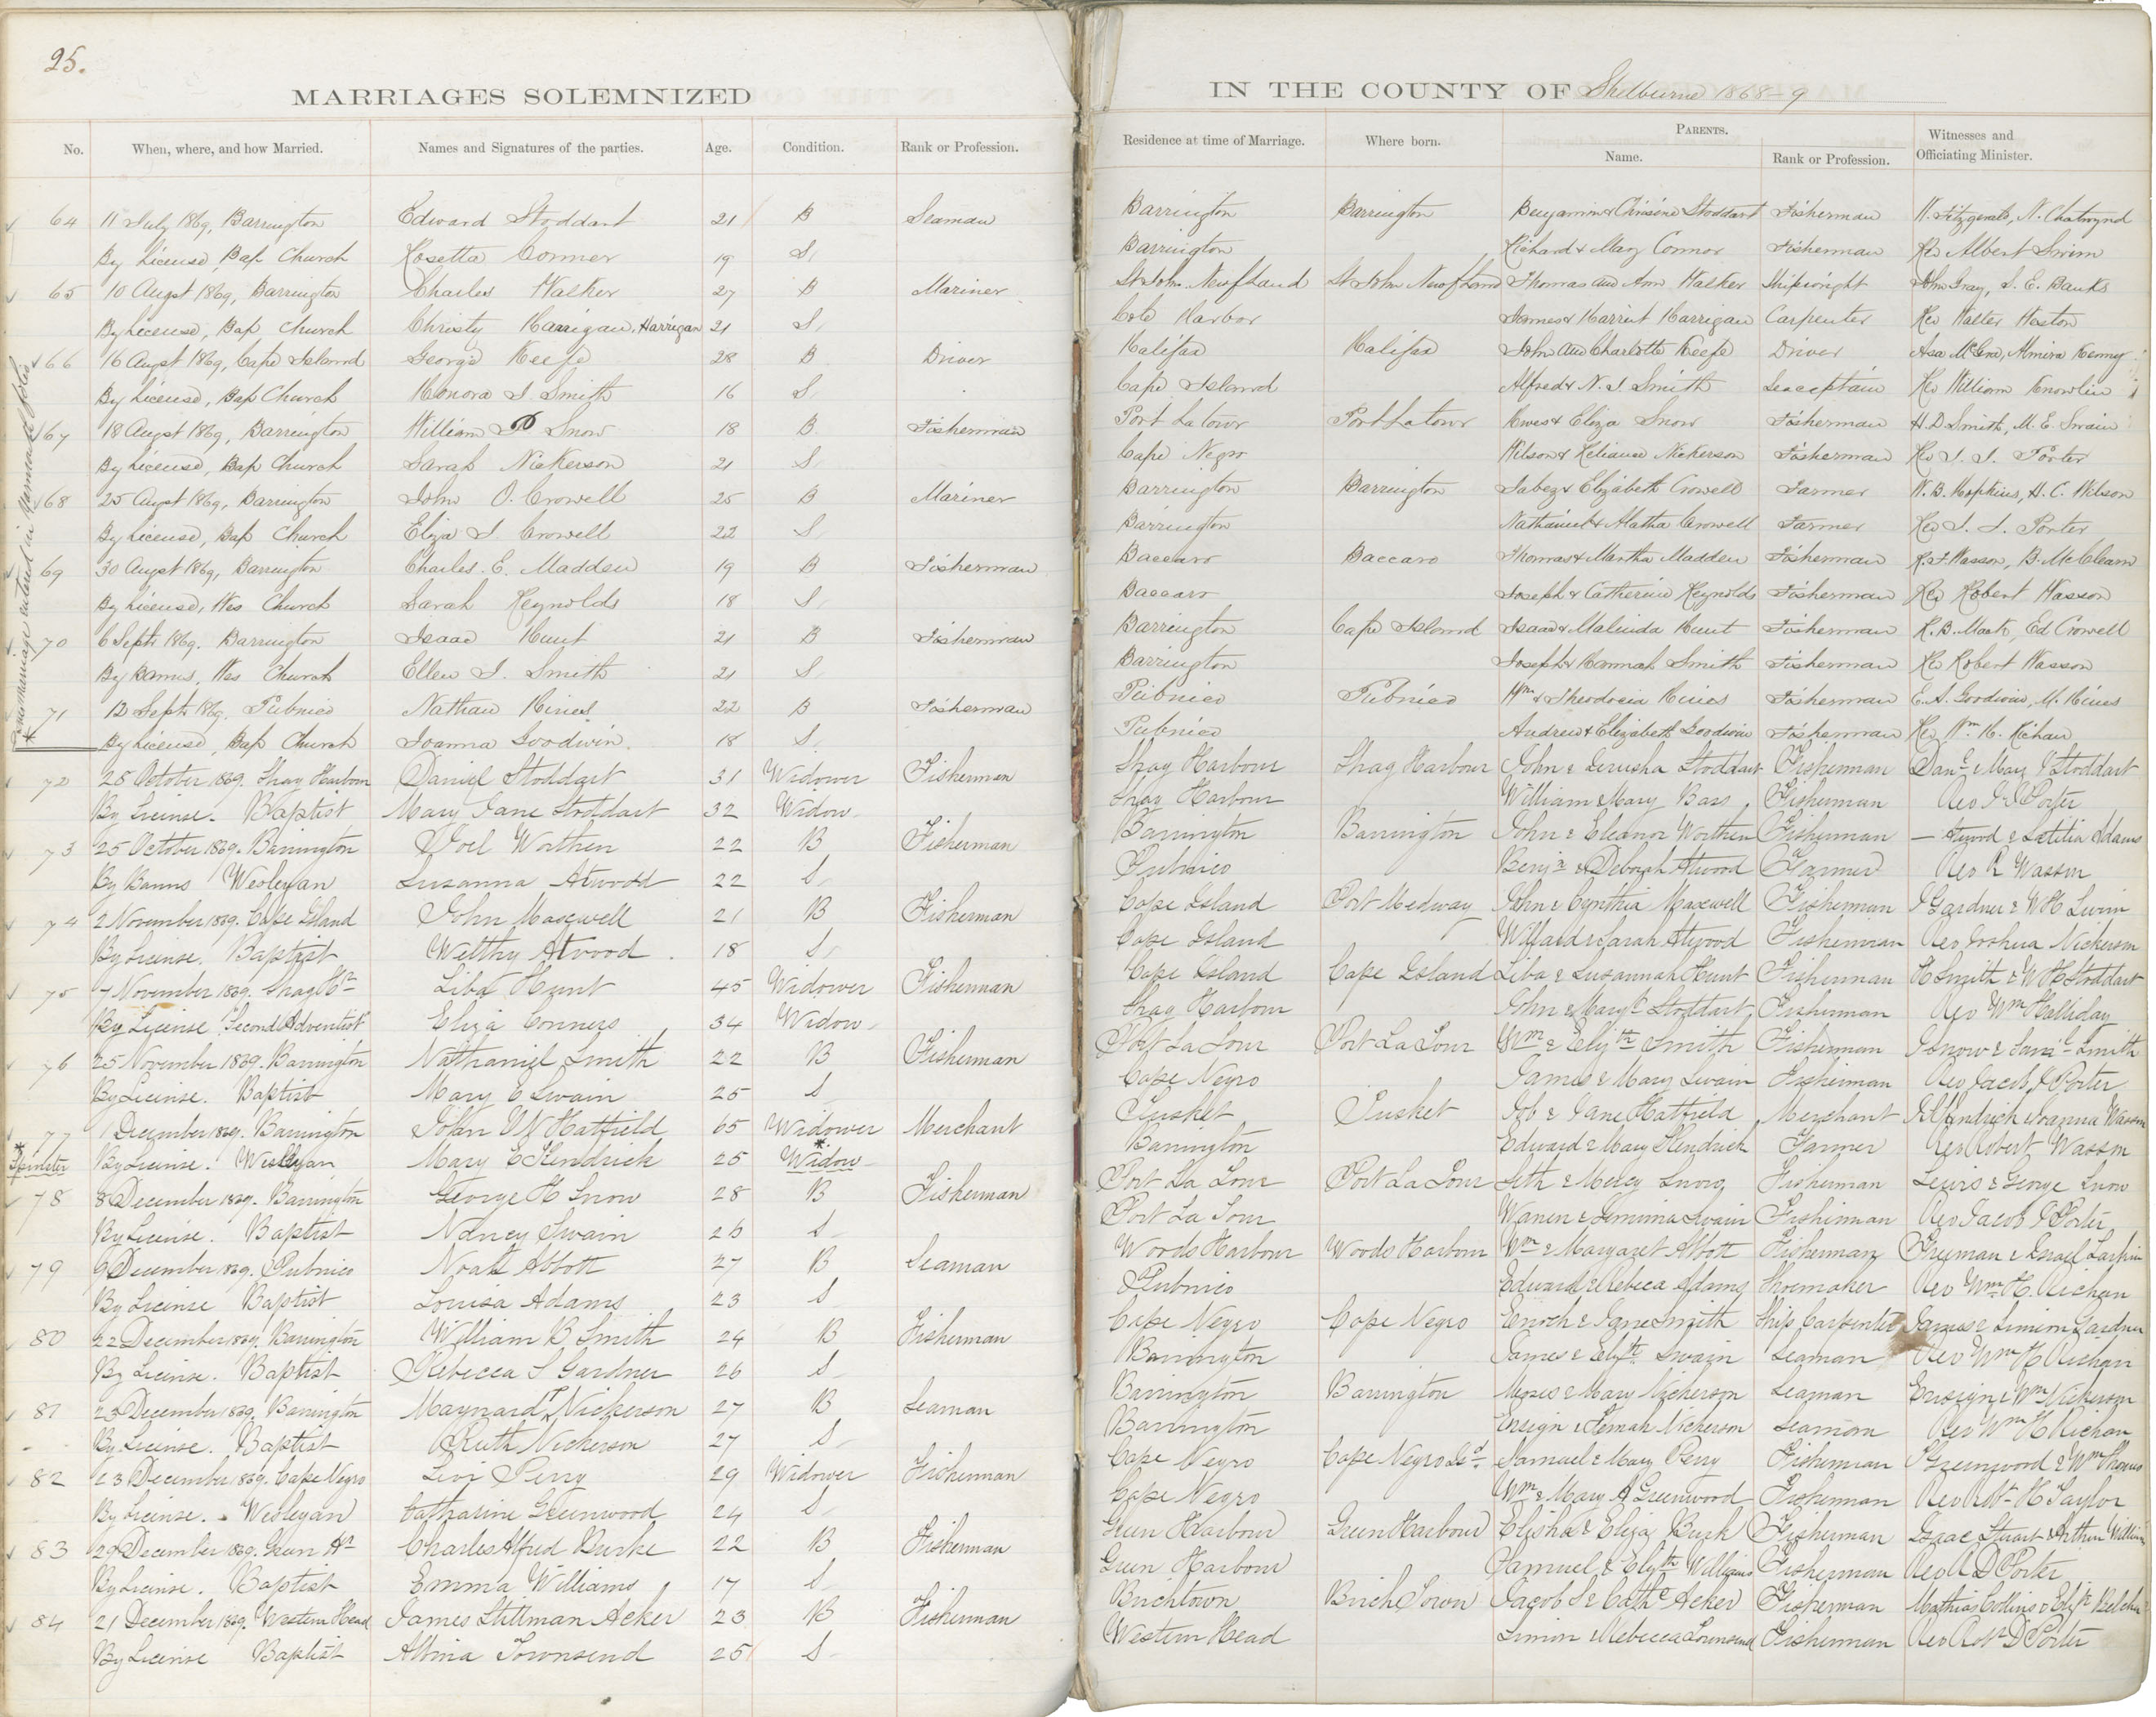 25.
MARRIAGES SOLEMNIZED
IN THE COUNTY OF Shelburne 1868-9
No. When, where, and how Married. Names and Signatures of the parties. Age. Condition. Rank or Profession. Residence at time of Marriage. Where born. PARENTS. Name. Rank or Profession. Witnesses and Officiating Minister.
64 11 July 1869, Barrington Edward Stoddart 21 B Seaman Barrington Barrington Benjamin & Stoddart Fisherman W. Fitzgerald, N. Chatwynd
By License, Bap Church Rosetta Conner 19 S, Barrington Richard & Mary Connor Fisherman Rev Albert Swim
65 10 Augst 1869, Barrington Charles Walker 27 B Mariner St John Newfland St John Newfland Thomas and Ann Walker Shipwright John Gray, S. E. Banks
By License, Bap Church Christy Harrigan, Harrigan 21 S, Cole Harbor James & Harriet Harrigan Carpenter Rev Walter Weston
66 16 Augst 1869, Cape Island George Keefe 28 B Driver Halifax Halifax John and Charlotte Keefe Driver Asa McGra, Almira Kenny
By License, Bap Church Honora J. Smith 16 S. Cape Island Alfred & N. J. Smith Seacaptain Rev William Knowlin
67 18 Augst 1869, Barrington William D Snow 18 B Fisherman Port Latour Port Latour Hwes & Eliza Snow Fisherman H. D Smith, M. E. Swain
By License, Bap Church Sarah Nickerson 21 S, Cape Negro Wilson & Nickerson Fisherman Rev J. I. Porter
68 25 Augst 1869, Barrington John O. Crowell 25 B Mariner Barrington Barrington Jabez & Elizabeth Crowell Farmer W. B. Hopkins, H. C. Wilson
By License, Bap Church Eliza J. Crowell 22 S, Barrington Nathaniel & Crowell Farmer Rev J. I. Porter
69 30 Augst 1869, Barrington Charles. E. Madden 19 B Fisherman Baccaro Baccaro Thomas & Martha Madden Fisherman R. F. Wasson, B. McClearn
By License, Wes Church Sarah Reynolds 18 S, Baccaro Joseph & Catherine Reynolds Fisherman Rev Robert Wasson
70 6 Septr 1869. Barrington Isaac Hunt 21 B Fisherman Barrington Cape Island Isaac & Malinda Hunt Fisherman Ed Crowell
By Banns, Wes Church Ellen J. Smith 21 S, Barrington Joseph & Hannah Smith Fisherman Rev Robert Wasson
71 12 Septr 1869. Pubnico Nathan Hines 22 B Fisherman Pubnico Pubnico Wm & Theodocia Hines Fisherman E. A. Goodwin, M. Hines
By License, Bap Church Joanna Goodwin. 18 S. Pubnico Andrew & Elizabeth Goodwin Fisherman Rev Wm H. Richan
72 28 October 1869. Shag Harbour Daniel Stoddart 31 Widower Fisherman Shag Harbour Shag Harbour John & Jerusha Stoddart Fisherman Danl & Mary Stoddart
By License. Baptist Mary Jane Stoddart 32 Widow Shag Harbour William & Mary Bass Fisherman Rev J I Porter
73 25 October 1869. Barrington Joel Worthen 22 B Fisherman Barrington Barrington John & Eleanor Worthen Fisherman — Atwood & Letitia Adams
By Banns Wesleyan Susanna Atwood 22 S Pubnico Benjn & Deborah Atwood Farmer Rev R Wasson
74 2 November 1869. Cape Island John Maxwell 21 B Fisherman Cape Island Port Medway John & Cynthia Maxwell Fisherman J Gardner & W H Swim
By License. Baptist Welthy Atwood 18 S Cape Island Willard & Sarah Atwood Fisherman Rev Joshua Nickerson
75 7 November 1869. Shag Hr Liba Hunt 45 Widower Fisherman Cape Island Cape Island Liba & Susannah Hunt Fisherman H Smith & W H Stoddart
By License "Second Adventist" Eliza Conners 34 Widow Shag Harbour John & Mary Stoddart Fisherman Rev Wm Halliday
76 25 November 1869. Barrington Nathaniel Smith 22 B Fisherman Port La Tour Port La Tour Wm & Elizth Smith Fisherman J Snow & Saml Smith
By License. Baptist Mary E Swain 25 S Cape Negro James & Mary Swain Fisherman Rev Jacob I Porter
77 1 December 1869. Barrington John V N Hatfield 65 Widower Merchant Tusket Tusket Job & Jane Hatfield Merchant Kendrick & Joanna Wasson
* Spinster By License. Wesleyan Mary E Kendrick 25 * Widow Barrington Edward & Mary Kendrick Farmer Rev Robert Wasson
78 8 December 1869. Barrington George H Snow 28 B Fisherman Port La Tour Port La Tour Seth & Mercy Snow Fisherman Lewis & George Snow
By License. Baptist Nancy Swain 26 S Port La Tour Warren & Jemima Swain Fisherman Rev Jacob I Porter
79 9 December 1869. Pubnico Noah Abbott 27 B Seaman Woods Harbour Woods Harbour Wm & Margaret Abbott Fisherman Freeman & Israel Larkin
By License Baptist Louisa Adams 23 S Pubnico Edward & Rebeca Adams Shoemaker Rev Wm H. Richan
80 22 December 1869. Barrington William B Smith 24 B Fisherman Cape Negro Cape Negro Enoch & Jane Smith Ship Carpenter James & Simeon Gardner
By License. Baptist Rebecca S Gardner 26 S Barrington James & Elizth Swain Seaman Rev Wm H Richan
81 23 December 1869. Barrington Maynard P Nickerson 27 B Seaman Barrington Barrington Moses & Mary Nickerson Seaman Ensign & Wm Nickerson
By License. Baptist Ruth Nickerson 27 S Barrington Ensign & Nickerson Seaman Rev Wm H Richan
82 23 December 1869. Cape Negro Levi Perry 29 Widower Fisherman Cape Negro Cape Negro Isd. Samuel & Mary Perry Fisherman Greenwood & Wm Thomas
By License. Wesleyan Catharine Greenwood 24 S Cape Negro Wm & Mary A Greenwood Fisherman Rev Robt H Taylor
83 29 December 1869. Green Hr Charles Alfred Burke 22 B Fisherman Green Harbour Green Harbour Elisha & Eliza Burk Fisherman Isaac Stuart & Arthur William
By License. Baptist Emma Williams 17 S Green Harbour Samuel & Elizth Williams Fisherman Rev R D Porter
84 21 December 1869. Western Head James Stillman Acker 23 B Fisherman Birchtown Birch Town Jacob S & Cathe Acker Fisherman Mathias Collins & Elizth Belcher
By License Baptist Albina Townsend 25 S Western Head Simon & Rebecca Townsend Fisherman Rev Robt D Porter